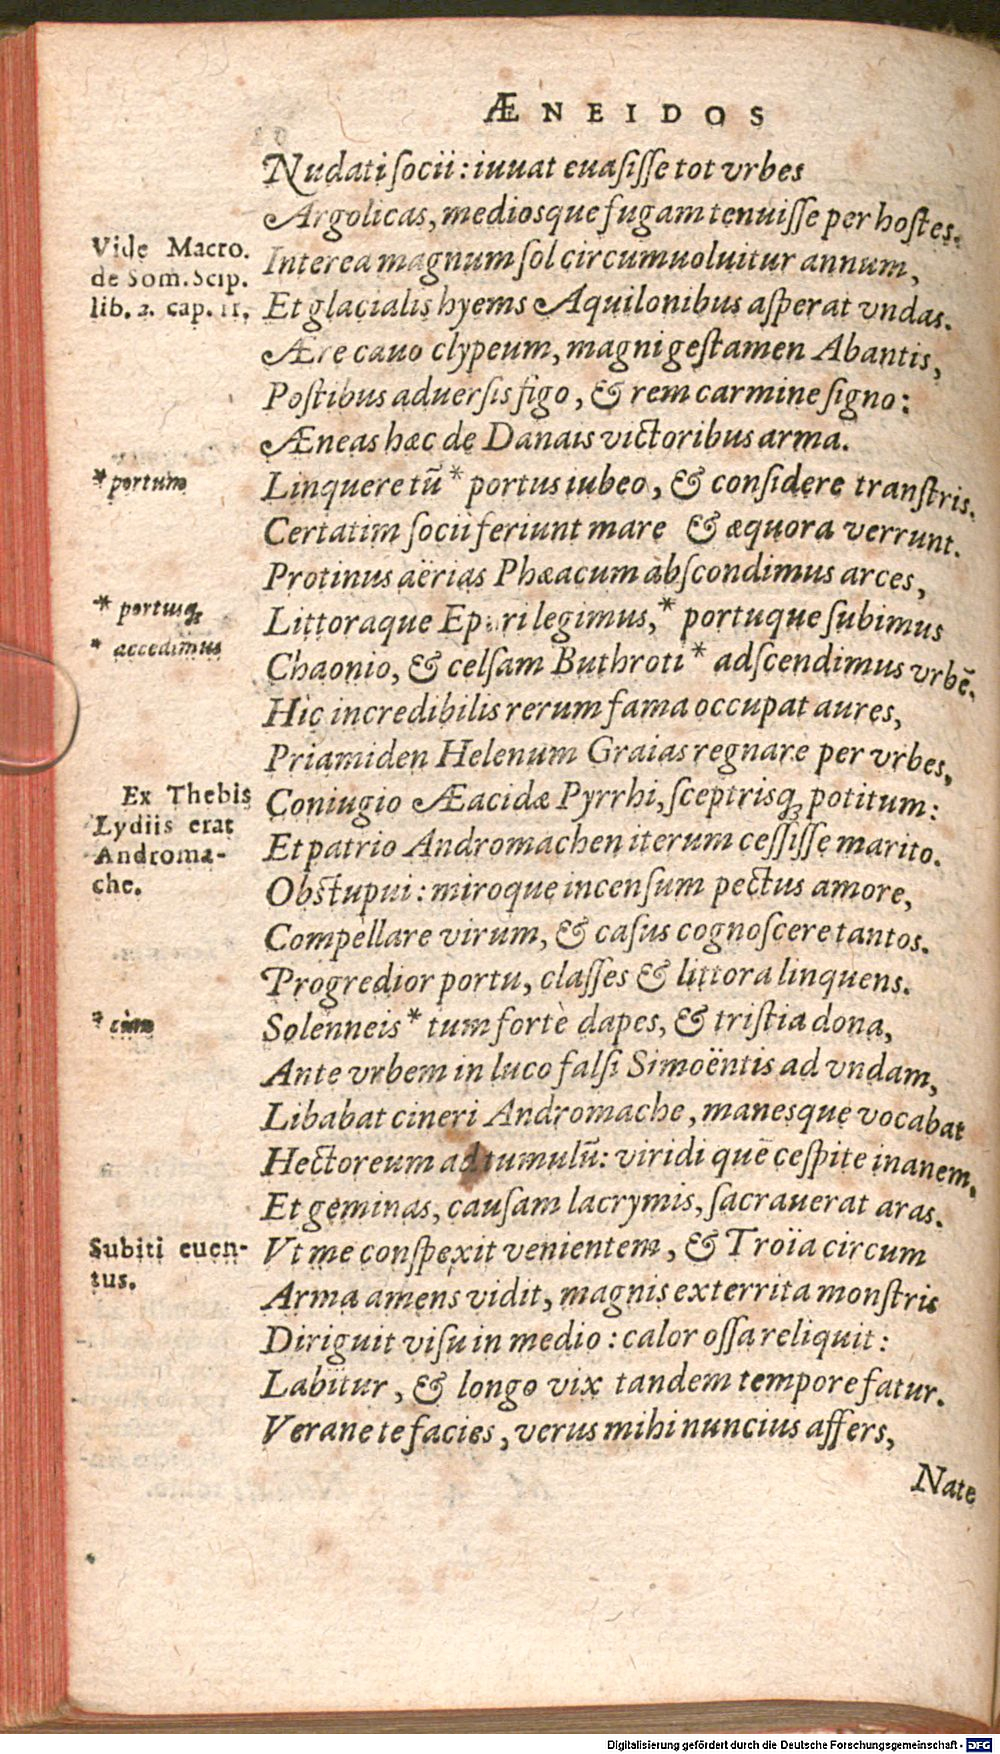 ÆNEIDOS
Nudati ſocii: iuuat euaſiſſe tot vrbes
Argolicas, mediosque fugam tenuiſſe per hoſtes.
Vide Macro.
de Som. Scip.
lib. 2. cap. 11.
Interea magnum ſol circumuoluitur annum,
Et glacialis hyems Aquilonibus aſperat vndas.
Ære cauo clypeum, magni geſtamen Abantis,
Poſtibus aduerſis figo, & rem carmine ſigno:
Æneas hæc de Danais victoribus arma.
* portum
Linquere tũ * portus iubeo, & conſidere tranſtris.
Certatim ſocii feriunt mare & æquora verrunt.
Protinus aërias Phæacum abſcondimus arces,
* portusq;
Littoraque Epiri legimus, * portuque ſubimus
* accedimus
Chaonio, & celſam Buthroti * adſcendimus vrbẽ.
Hic incredibilis rerum fama occupat aures,
Priamiden Helenum Graias regnare per vrbes,
Ex Thebis
Lydiis erat
Androma-
che.
Coniugio Æacidæ Pyrrhi, ſceptrisq; potitum:
Et patrio Andromachen iterum ceſſiſſe marito.
Obſtupui: miroque incenſum pectus amore,
Compellare virum, & caſus cognoſcere tantos.
Progredior portu, claſſes & littora linquens.
* cùm
Solenneis * tum fortè dapes, & triſtia dona,
Ante vrbem in luco falſi Simoëntis ad vndam,
Libabat cineri Andromache, manesque vocabat
Hectoreum ad tumulũ: viridi quẽ ceſpite inanem,
Et geminas, cauſam lacrymis, ſacrauerat aras.
Subiti euen-
tus.
Vt me conſpexit venientem, & Troïa circum
Arma amens vidit, magnis exterrita monſtris
Diriguit viſu in medio: calor oſſa reliquit:
Labitur, & longo vix tandem tempore fatur.
Verane te facies, verus mihi nuncius affers,
Nate
Digitalisierung gefördert durch die Deutsche Forschungsgemeinschaft - DFG